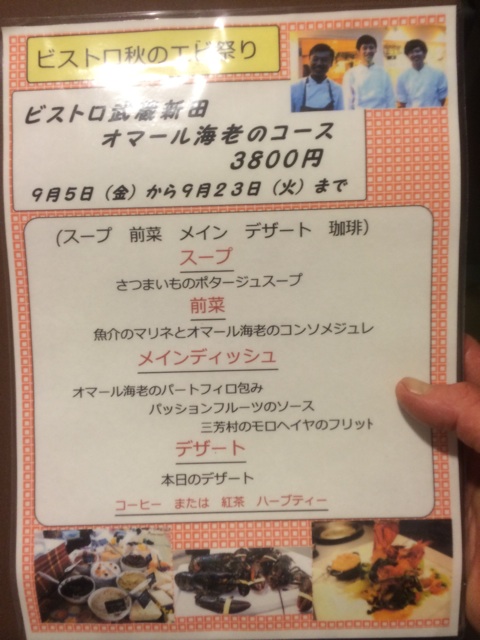 ビストロ秋のエビ祭り
ビストロ武蔵新田
オマール海老のコース
3800円
9月5日(金)から9月23日(火)まで
(スープ 前菜 メイン デザート 珈琲)
スープ
さつまいものポタージュスープ
前菜
魚介のマリネとオマール海老のコンソメジュレ
メインディッシュ
オマール海老のパートフィロ包み
パッションフルーツのソース
三芳村のモロヘイヤのフリット
デザート
本日のデザート
コーヒー または 紅茶 ハーブティー